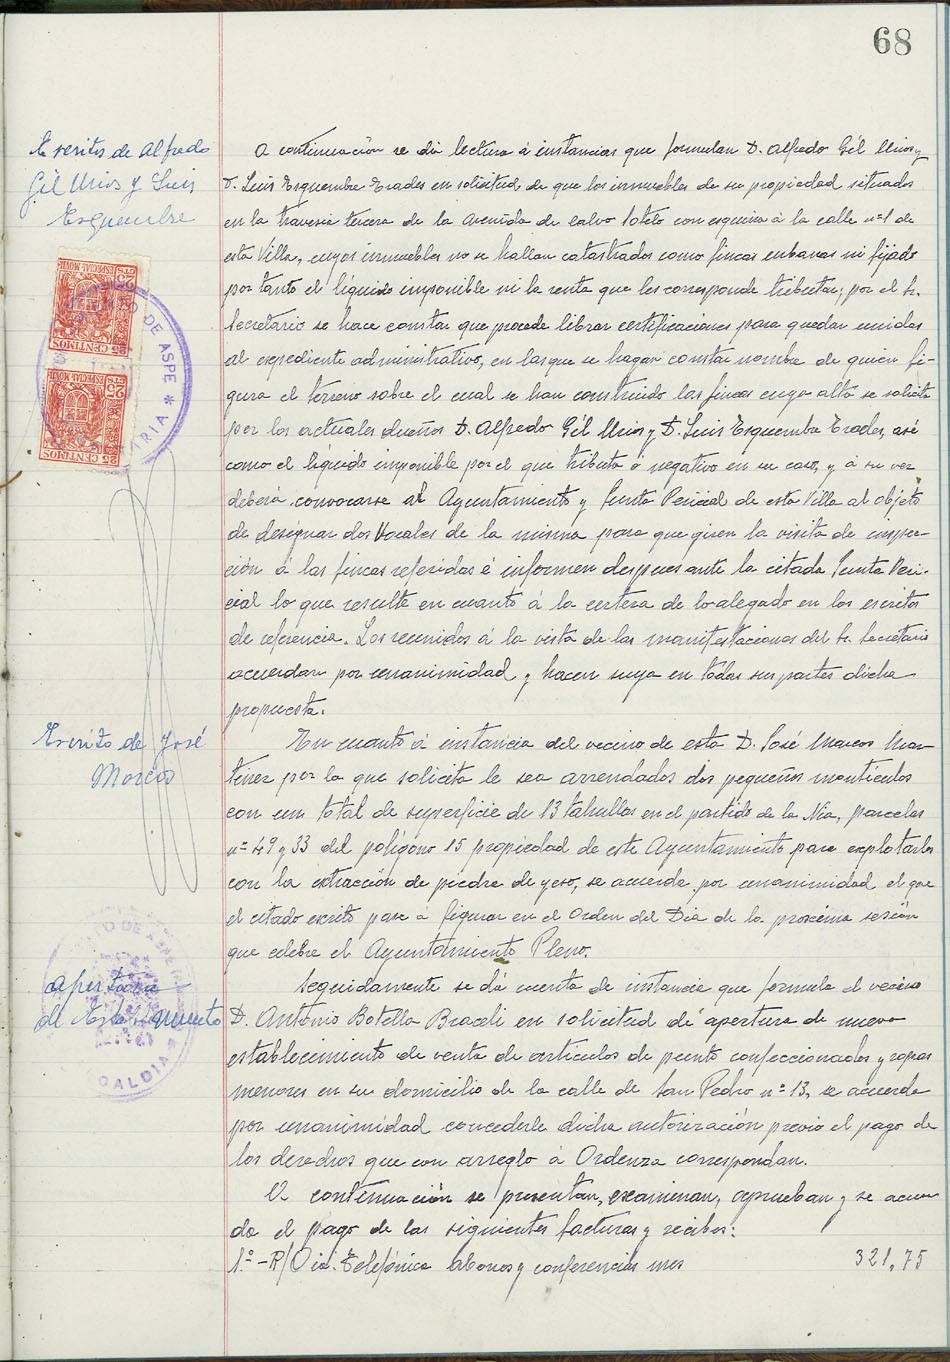 68
Escritos de Alfredo
Gil Urios y Luis
Esquembre
A continuación se dá lectura á instancias que formulan D. Alfredo Gil Urios y
D. Luis Esquembre Erades en solicitud de que los inmuebles de su propiedad situados
en la travesia tercera de la Avenida de Calvo Sotelo con esquina á la calle nº 1 de
esta Villa, cuyos inmuebles no se hallan catastrados como fincas urbanas ni fijado
por tanto el líquido imponible ni la renta que les corresponde tributar; por el Sr.
Secretario se hace constar que procede librar certificaciones para quedar unidas
al expediente administrativo, en las que se hagan constar nombre de quien fi-
gura el terreno sobre el cual se han construido las fincas cuya alta se solicita
por los actuales dueños D. Alfredo Gil Urios y D. Luis Esquembre Erades, así
como el líquido imponible por el que tributa ó negativo en su caso, y á su vez
deberá convocarse al Ayuntamiento y Junta Pericial de esta Villa al objeto
de designar dos Vocales de la misma para que giren la visita de inspec-
ción á las fincas referidas é informen despues ante la citada Junta Peri-
cial lo que resulte en cuanto á la certeza de lo alegado en los escritos
de referencia. Los reunidos á la vista de las manifestaciones del Sr. Secretario
acuerdan por unanimidad y hacen suya en todas sus partes dicha
propuesta.
Escrito de José
Marcos
En cuanto á instancia del vecino de esta D. José Marcos Mar-
tinez por la que solicita le sea arrendados dos pequeños monticulos
con un total de superficie de 13 tahullas en el partido de la Nia, parcelas
nº 49 y 33 del polígono 15 propiedad de este Ayuntamiento para explotarlas
con la extracción de piedra de yeso, se acuerda por unanimidad el que
el citado escrito pase á figurar en el Orden del Dia de la proxima sesión
que celebre el Ayuntamiento Pleno.
Apertura
de Establecimiento
Seguidamente se dá cuenta de instancia que formula el vecino
D. Antonio Botella Braceli en solicitud de apertura de nuevo
establecimiento de venta de articulos de punto confeccionados y ropas
menores en su domicilio de la calle de San Pedro nº 13, se acuerda
por unanimidad concederle dicha autorización previo el pago de
los derechos que con arreglo á Ordenza correspondan.
A continuación se presentan, examinan, aprueban y se acuer-
da el pago de las siguientes facturas y recibos:
1.º -R/ Cia. Telefónica abonos y conferencias mes 321,75
ESPECIAL MOVIL
25 CTS
25 CENTIMOS
ESPECIAL MOVIL
25 CTS
25 CENTIMOS
DE ASPE *
ALCALDIA *